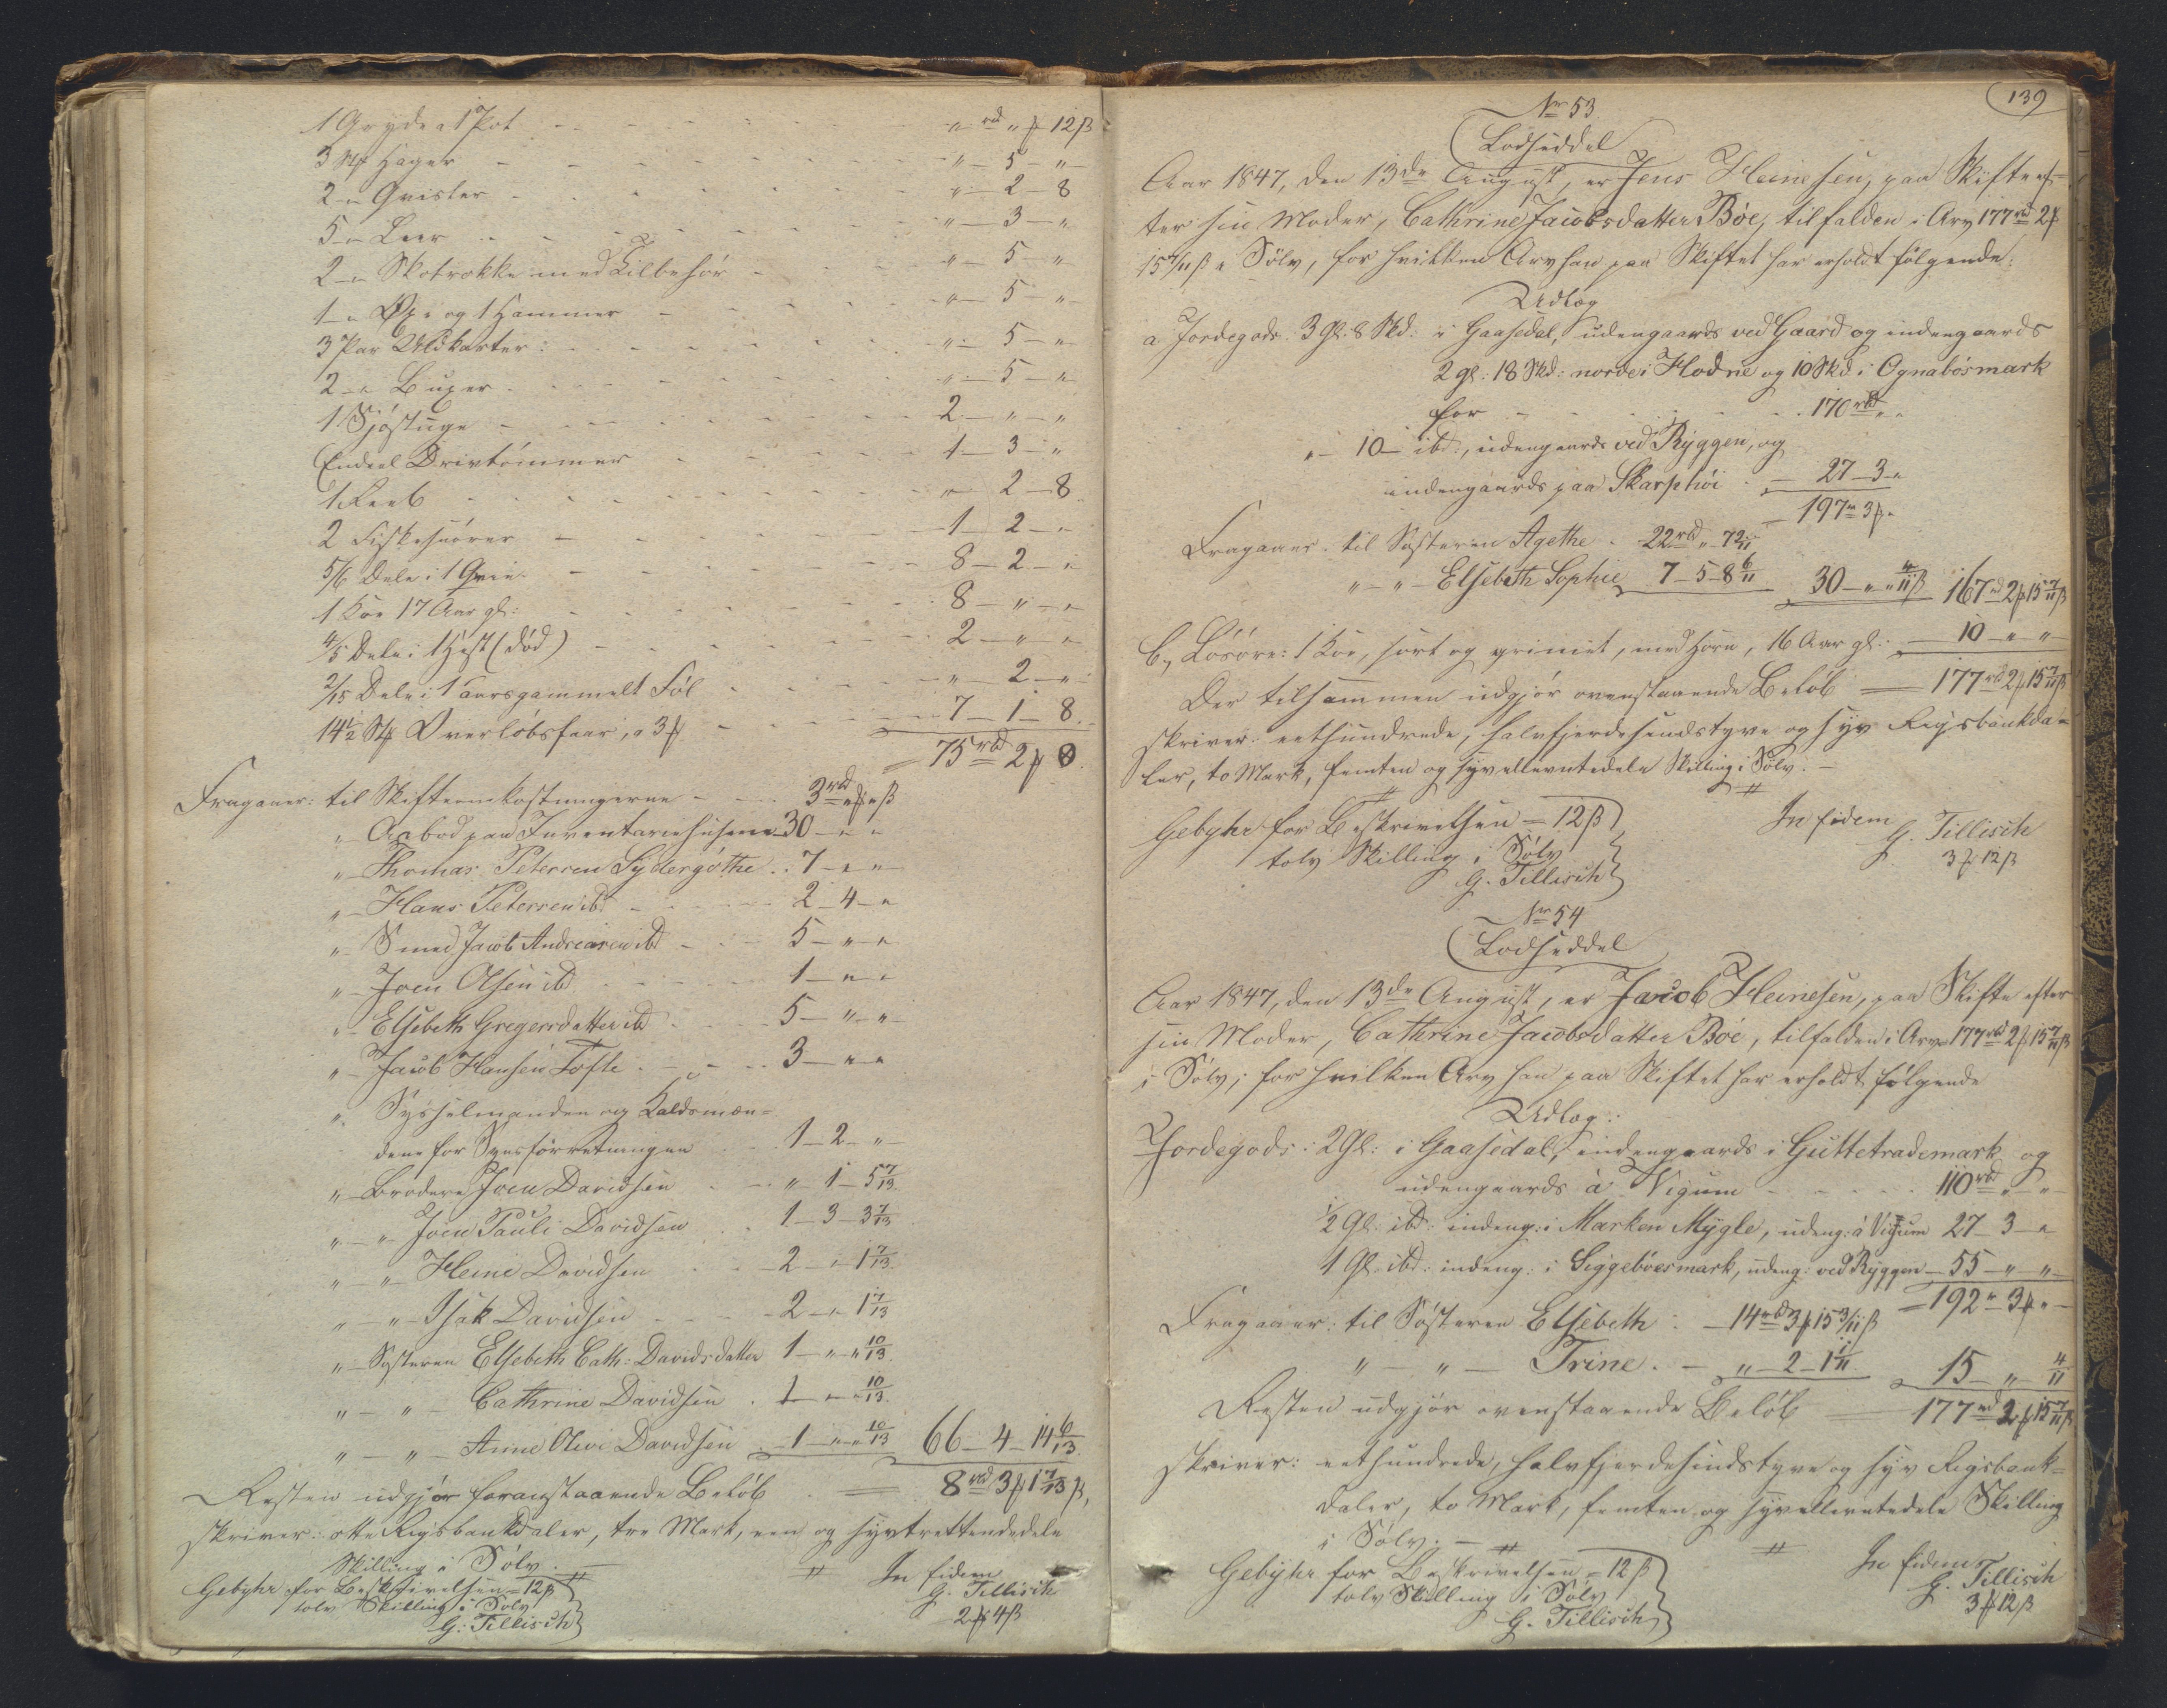 1 Gryde a 1 Pot - - - " rbd " ₻ 12 ß
3 Stk Hager - - - " - 5 - "
2 - " Qvister - - - " - 2 - 8
5 - " Leer - - - " - 3 - "
2 - " Skotrokke med Tilbehör - - - " - 5 - "
1 - " Øxe og 1 Hammer - - - " - 5 - "
3 Par Uldkarter: - - - " - 5 - "
2 - " Buxer - - - " - 5 - "
1 Sjöstuge - - - 2 - " - "
Endeel Drivtömmer - - - 1 - 3 - "
1 Reeb - - - " - 2 - 8
2 Fiskesnører - - - 1 - 2 - "
5/6 Dele i 1 Qvie - - - 8 - 2 - "
1 Koe 17 Aar gl: - - - 8 - " - "
4/5 Dele i 1 Hest (död) - - - 2 - " - "
2/15 Dele i 1 aarsgammelt Föl - - - " - 2 - "
14½ Stk Overløbsfaar, a 3 ₻ - - - 7 - 1 - 8
= 75 rbd 2 ₻ 0
Fragaaer: til Skifteomkostningerne - - 3 rbd " ₻ " ß
" Aabod paa Inventariehusene 30 - " - "
" - Thomas Petersen Sydergöthe . . 7 - " - "
" - Hans Petersen ibd - - 2 - 4 - "
" - Smed Jacob Andreasen ibd - - 5 - " - "
" - Joen Olsen ibd - - 1 - " - "
" - Elsebeth Gregersdatter ibd - - 5 - " - "
" - Jacob Hansen Tofte - - 3 - " - "
" - Sysselmanden og Laldsmæn=
dene for Synsforretningen - 1 - 2 - "
" - Brodere Joen Davidsen - - " - 1 - 5 7/13
" - " - Joen Pauli Davidsen - 1 - 3 - 3 7/13
" - " - Heine Davidsen - - 2 - " - 1 7/13
" - " - Isak Davidsen - - 2 - " - 1 7/13
" - Systeren Elsebeth Cath: Davidsdatter 1 - " - " 10/13
" - " - Cathrine Davidsen . 1 - " - " 10/13
" - " - Anne Olevi Davidsen . 1 - " - " 10/13 66 - 4 - 14 6/13
Resten udgjør foranstaaende Beløb = 8 rbd 3 ₻ 1 7/13 ß,
skriver: otte Rigsbankdaler, tre Mark, een og syvtrettendedele
Skilling i Sølv. -
Gebyhr for Beskrivelsen = 12 ß
tolv Skilling i Sølv
G. Tillisch
In fidem
G. Tillisch
2 ₻ 4 ß
139
No 53
Lodseddel
Aar 1847, den 13de August, er Jens Heinesen, paa Skifte ef=
ter sin Moder, Cathrine Jacobsdatter Böe, tilfalden i Arv 177 rbd 2 ₻
15 7/11 ß i Sölv, for hvilken Arv han paa Skiftet har erholdt følgende:
Udlæg
a Jordegods: 3 Gl: 8 Skd: i Gaasedal, udengaards ved Gaard og indengaards
2 gl: 18 Skd: norde i Hodne og 10 Skd. i Ognabösmark
for - - - 170 rbd " "
" - 10 - ibd:, udengaards ved Ryggen, og
indengaards paa Skarphöi - 27 - 3 - "
197 " 3 ₻ "
Fragaaer: til Søsteren Agethe . 22 rbd " 7 9/11
" - " - Elsebeth Sophie 7 - 5 - 8 6/11 30 - " - " 4/11 ß 167 rbd 2 ₻ 15 7/11 ß
b, Lösöre: 1 Koe, sort og grimet, med Horn, 16 Aar gl: - 10 - " - "
Der tilsammen udgjör ovenstaaende Beløb = 177 rbd 2 ₻ 15 7/11 ß
skriver: eethundrede, halvfjerdesindstyve og syv Rigsbankda=
ler, to Mark, femten og syvellevtedele Skilling i Sölv. -
Gebyhr for Beskrivelsen = 12 ß
tolv Skilling i Sölv
G. Tillisch
In fidem
G. Tillisch
3 ₻ 12 ß
No 54
Lodseddel
Aar 1847, den 13de August, er Jacob Heinesen, paa Skifte efter
sin Moder, Cathrine Jacobsdatter Böe, tilfalden i Arv 177 rbd 2 ₻ 15 7/11 ß
i Sölv; for hvilken Arv han paa Skiftet har erholdt følgende
Udlæg:
Jordegods: 2 Gl: i Gaasedal, indengaards i Guttetrademark og
udengaards à Vigum - - - 110 rbd " - "
½ Gl: ibd: indeng: i Marken Mygle, udeng: à Vigum 27 - 3 - "
1 Gl: ibd: indeng: i Siggeböesmark, udeng: ved Ryggen - 55 - " - "
= 192 " 3 ₻ " -
Fragaaer: til Søsteren Elsebeth : - 14 rbd 3 ₻ 15 3/11 ß
" - " - Trine . - " - 2 - 1 1/11 15 - " - 4/11
Resten udgjør ovenstaaende Beløb = 177 rbd 2 ₻ 15 7/11 ß
skriver: eethundrede, halvfjerdesindstyve og syv Rigsbank=
daler, to Mark, femten og syvellevtedele Skilling
i Sölv. -
Gebyhr for Beskrivelsen = 12 ß
tolv Skilling i Sölv
G. Tillisch
In fidem
G. Tillisch
3 ₻ 12 ß